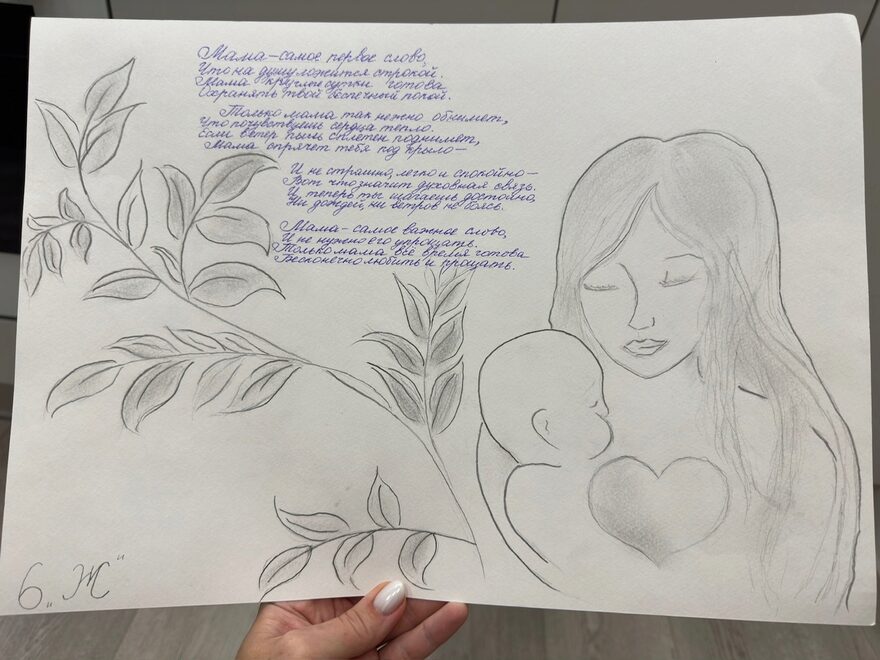 Мама – самое первое слово,
Что на душу ложится строкой.
Мама круглые сутки готова
Охранять твой беспечный покой.
Только мама так нежно обнимет,
Что почувствуешь сердца тепло.
Если ветер пыль сплетен поднимет,
Мама спрячет тебя под крыло –
И не страшно, легко и спокойно –
Вот что значит духовная связь.
И теперь ты шагаешь достойно,
Ни дождей, ни ветров не боясь.
Мама – самое важное слово,
И не нужно его упрощать.
Только мама всё время готова
Бесконечно любить и прощать.
6 „Ж"